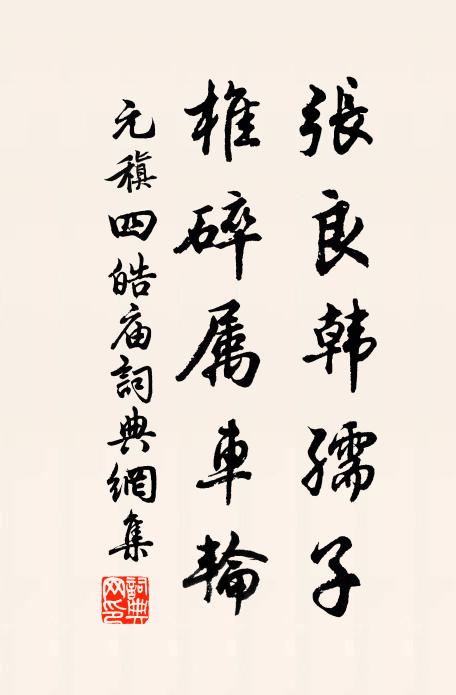 張良韓孺子
椎碎属車輪
元稹四皓庙詞典網集
詞典网印